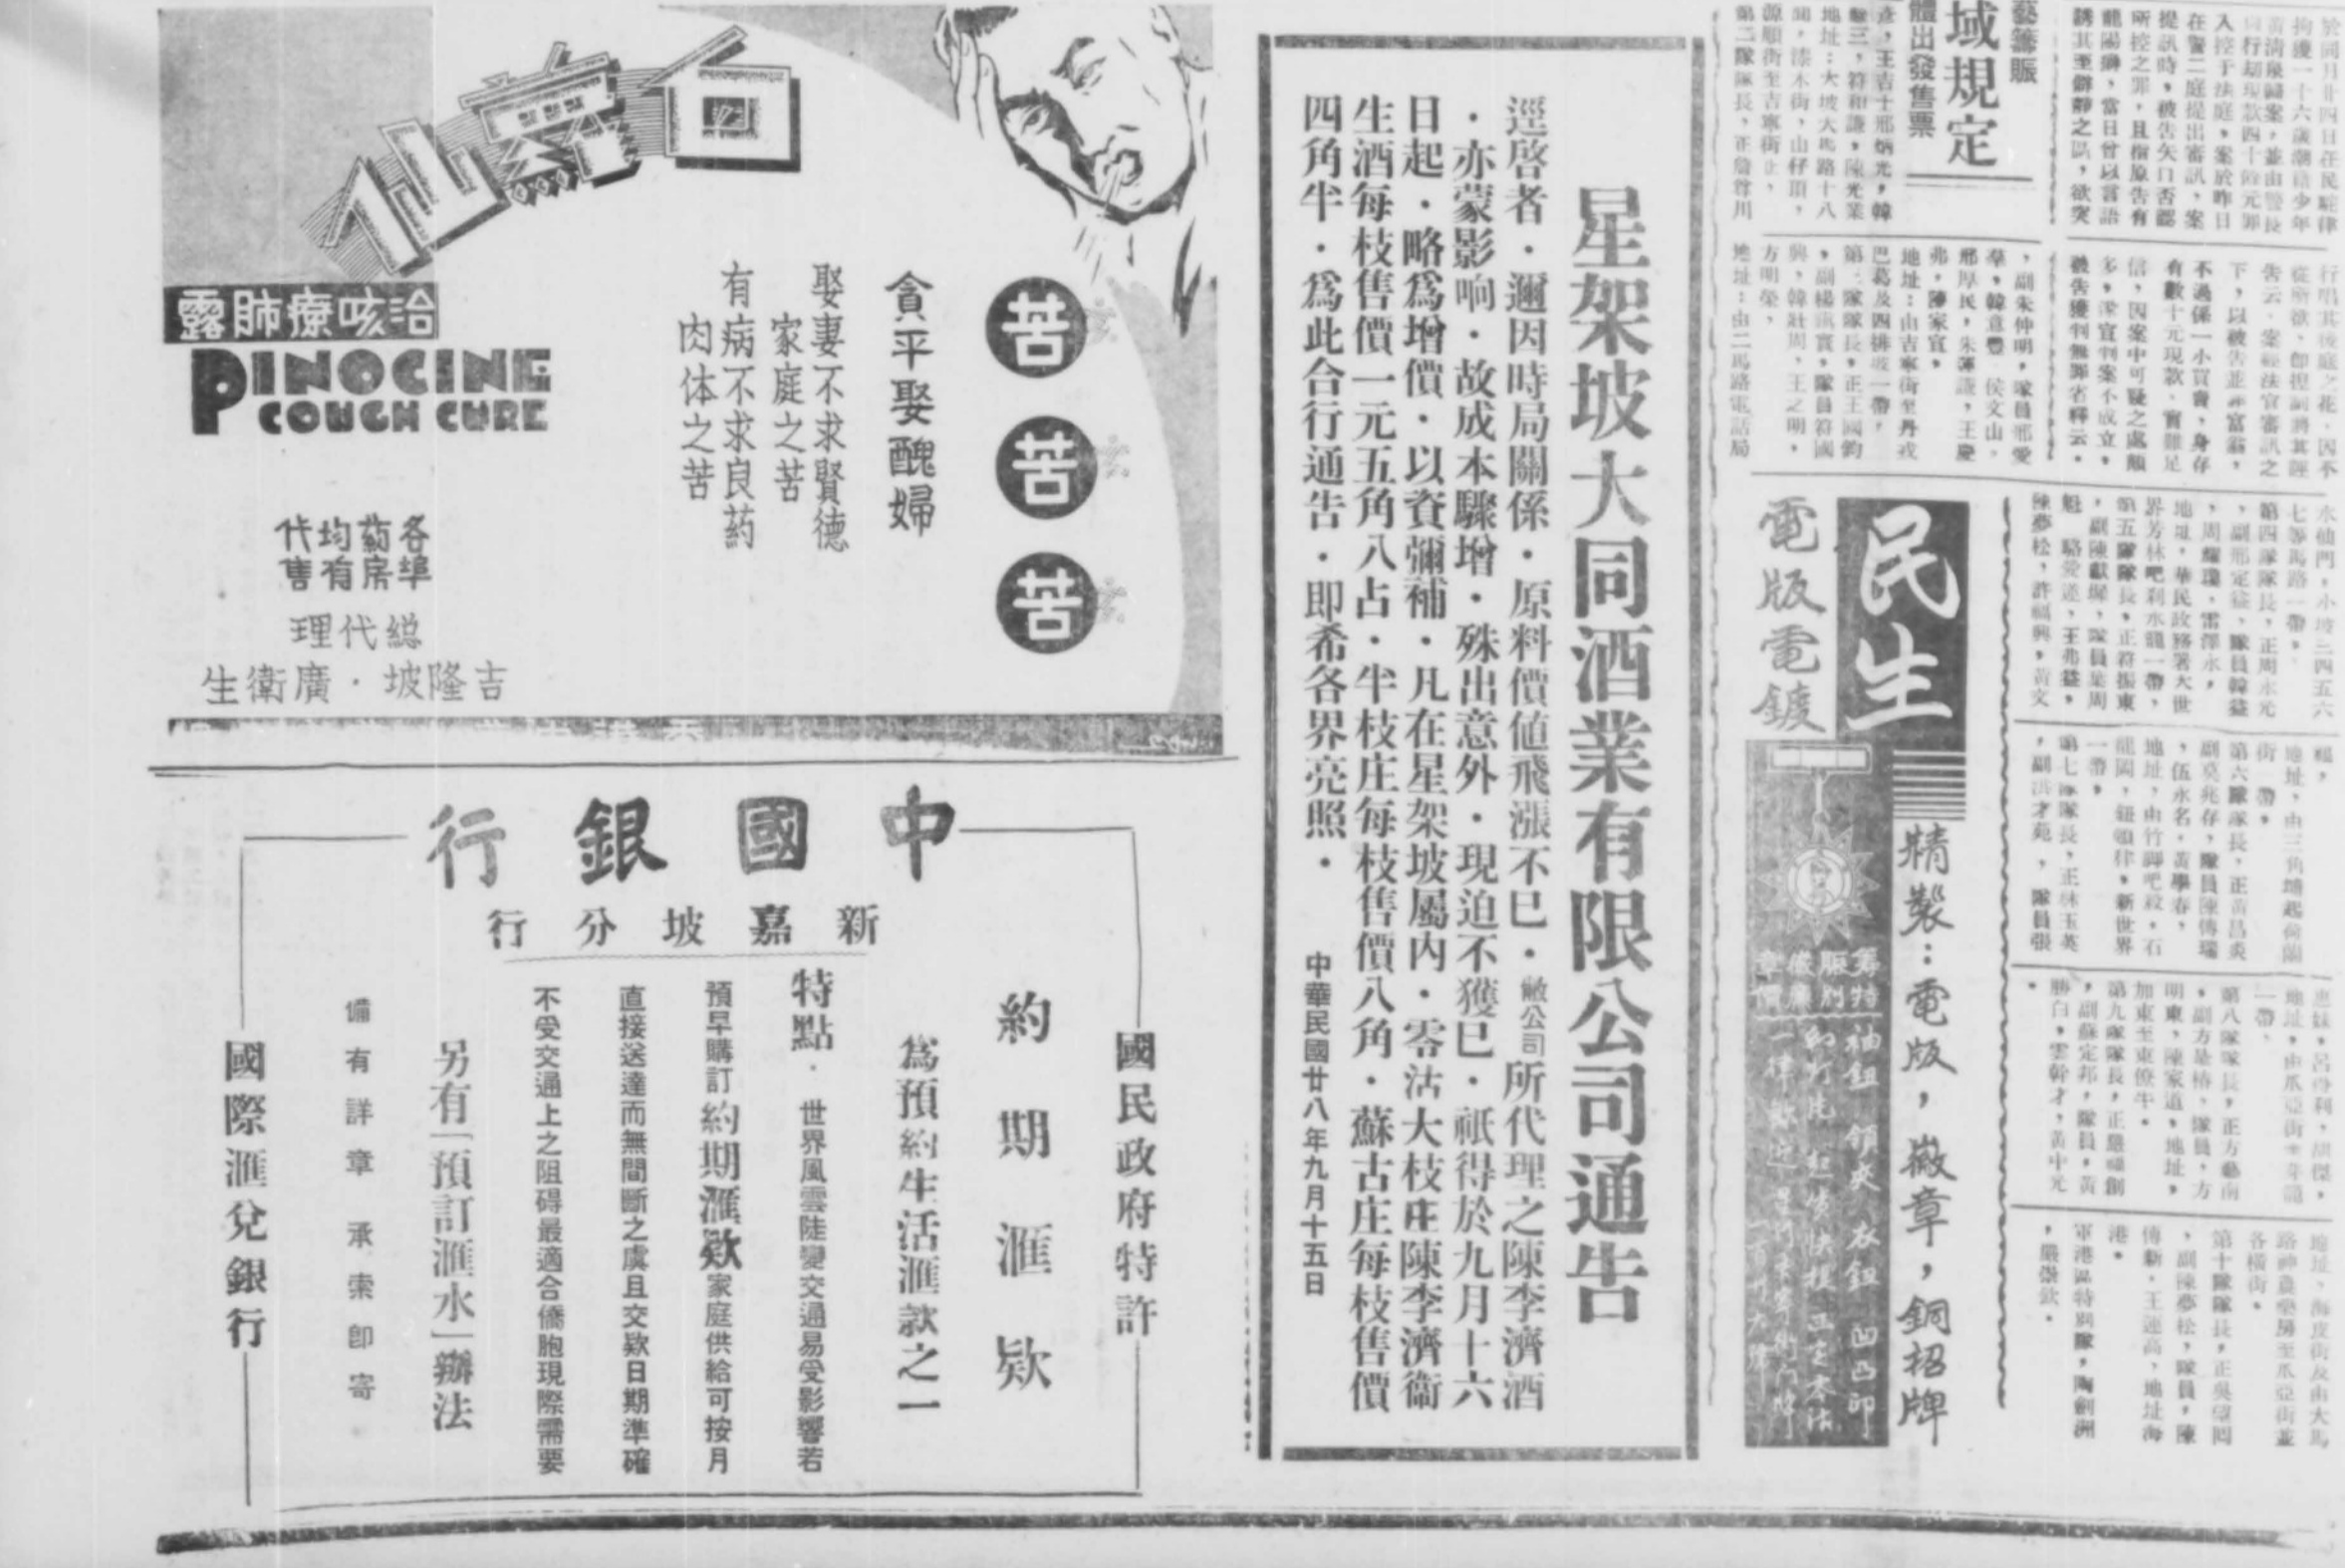 於同月廿四日在民駝律
拘獲一十六歲潮籍少年
入控于法庭，案於昨日
在警二庭提出審訊，案
提訊時，被告矢口否認
所控之罪，且指原告有
龍陽癖，當日曾以言語
誘其至僻靜之區，欲突
行唱其後庭之花，因不
從所欲，卽捏詞將其誣
告云，案經法官審訊之
下，以被告並非富翁，
不過係一小買賣，身存
有數十元現款，實難足
信，因案中可疑之處頗
多，遂宣判案不成立，
被告獲判無罪省釋云。
藝籌賑
域規定
體出發售票
彥，王吉士邢炳光，韓
地址：大坡大馬路十八
間，漆木街，山仔頂，
源順街至吉寧街止，
第二隊隊長，正詹尊川
，副朱仲明，隊員邢愛
羣，韓意豐，侯文山，
邢厚民，朱運謙，王慶
弗，陳家宣，
地址：由吉寧街至丹戎
巴葛及四排坡一帶，
第三隊隊長，正王國鈞
興，韓壯周，王之明，
方明榮，
地址：由二馬路電話局
水仙門，小坡三四五六
七等馬路一帶。
第四隊隊長，正周永元
，副邢定益，隊員韓益
，周耀瓊，雷澤永，
地址，華民政務署大世
界芳林吧利水龍一帶，
第五隊隊長，正符振東
陳夢松，許福興，黃文
地址，由三角埔起荷蘭
街一帶，
第六隊隊長，正黃昌炎
副莫兆存，隊員陳傳瑞
，伍永名，黃學春，
地址，由竹脚吧殺，石
龍岡，紐頓律，新世界
一帶，
第七隊隊長，正林玉英
，副洪才苑，隊員張
惠妹，呂啓利，胡傑，
一帶，
第八隊隊長，正方藝南
，副方是椿，隊員，方
明東，陳家道，地址，
加東至東僚牛。
第九隊隊長，正嚴福創
，副蘇定邦，隊員，黃
勝白，雲幹才，黃中元
。
地址，海皮街及由大馬
路神農藥房至爪亞街並
各橫街。
第十隊隊長，正吳璧問
，副陳夢松，隊員，陳
傳新，王運高，地址海
港。
軍港區特別隊，陶劍洲
，嚴崇欽。
民生
電版電鍍
精製：電版，徽章，銅招牌
星架坡大同酒業有限公司通告
逕啓者．邇因時局關係．原料價値飛漲不巳．敝公司所代理之陳李濟酒
．亦蒙影响．故成本驟增．殊出意外．現迫不獲巳．祇得於九月十六
日起．略爲增價．以資彌補．凡在星架坡屬內．零沽大枝庄陳李濟衞
生酒每枝售價一元五角八占．半枝庄每枝售價八角．蘇古庄每枝售價
四角半．爲此合行通告．即希各界亮照．
中華民國廿八年九月十五日
苦苦苦
貪平娶醜婦
娶妻不求賢德
家庭之苦
有病不求良药
肉体之苦
治咳療肺露
PINOCINE
COUGH CURE
各埠
药房
均有
代售
総代理
吉隆坡．廣衛生
中國銀行
新嘉坡分行
國民政府特許
約期滙欵
爲預約生活滙款之一
特點．世界風雲陡變交通易受影響若
預早購訂約期滙欵家庭供給可按月
直接送達而無間斷之虞且交欵日期準確
不受交通上之阻碍最適合僑胞現際需要
另有「預訂滙水」辦法
備有詳章 承索卽寄
國際滙兌銀行